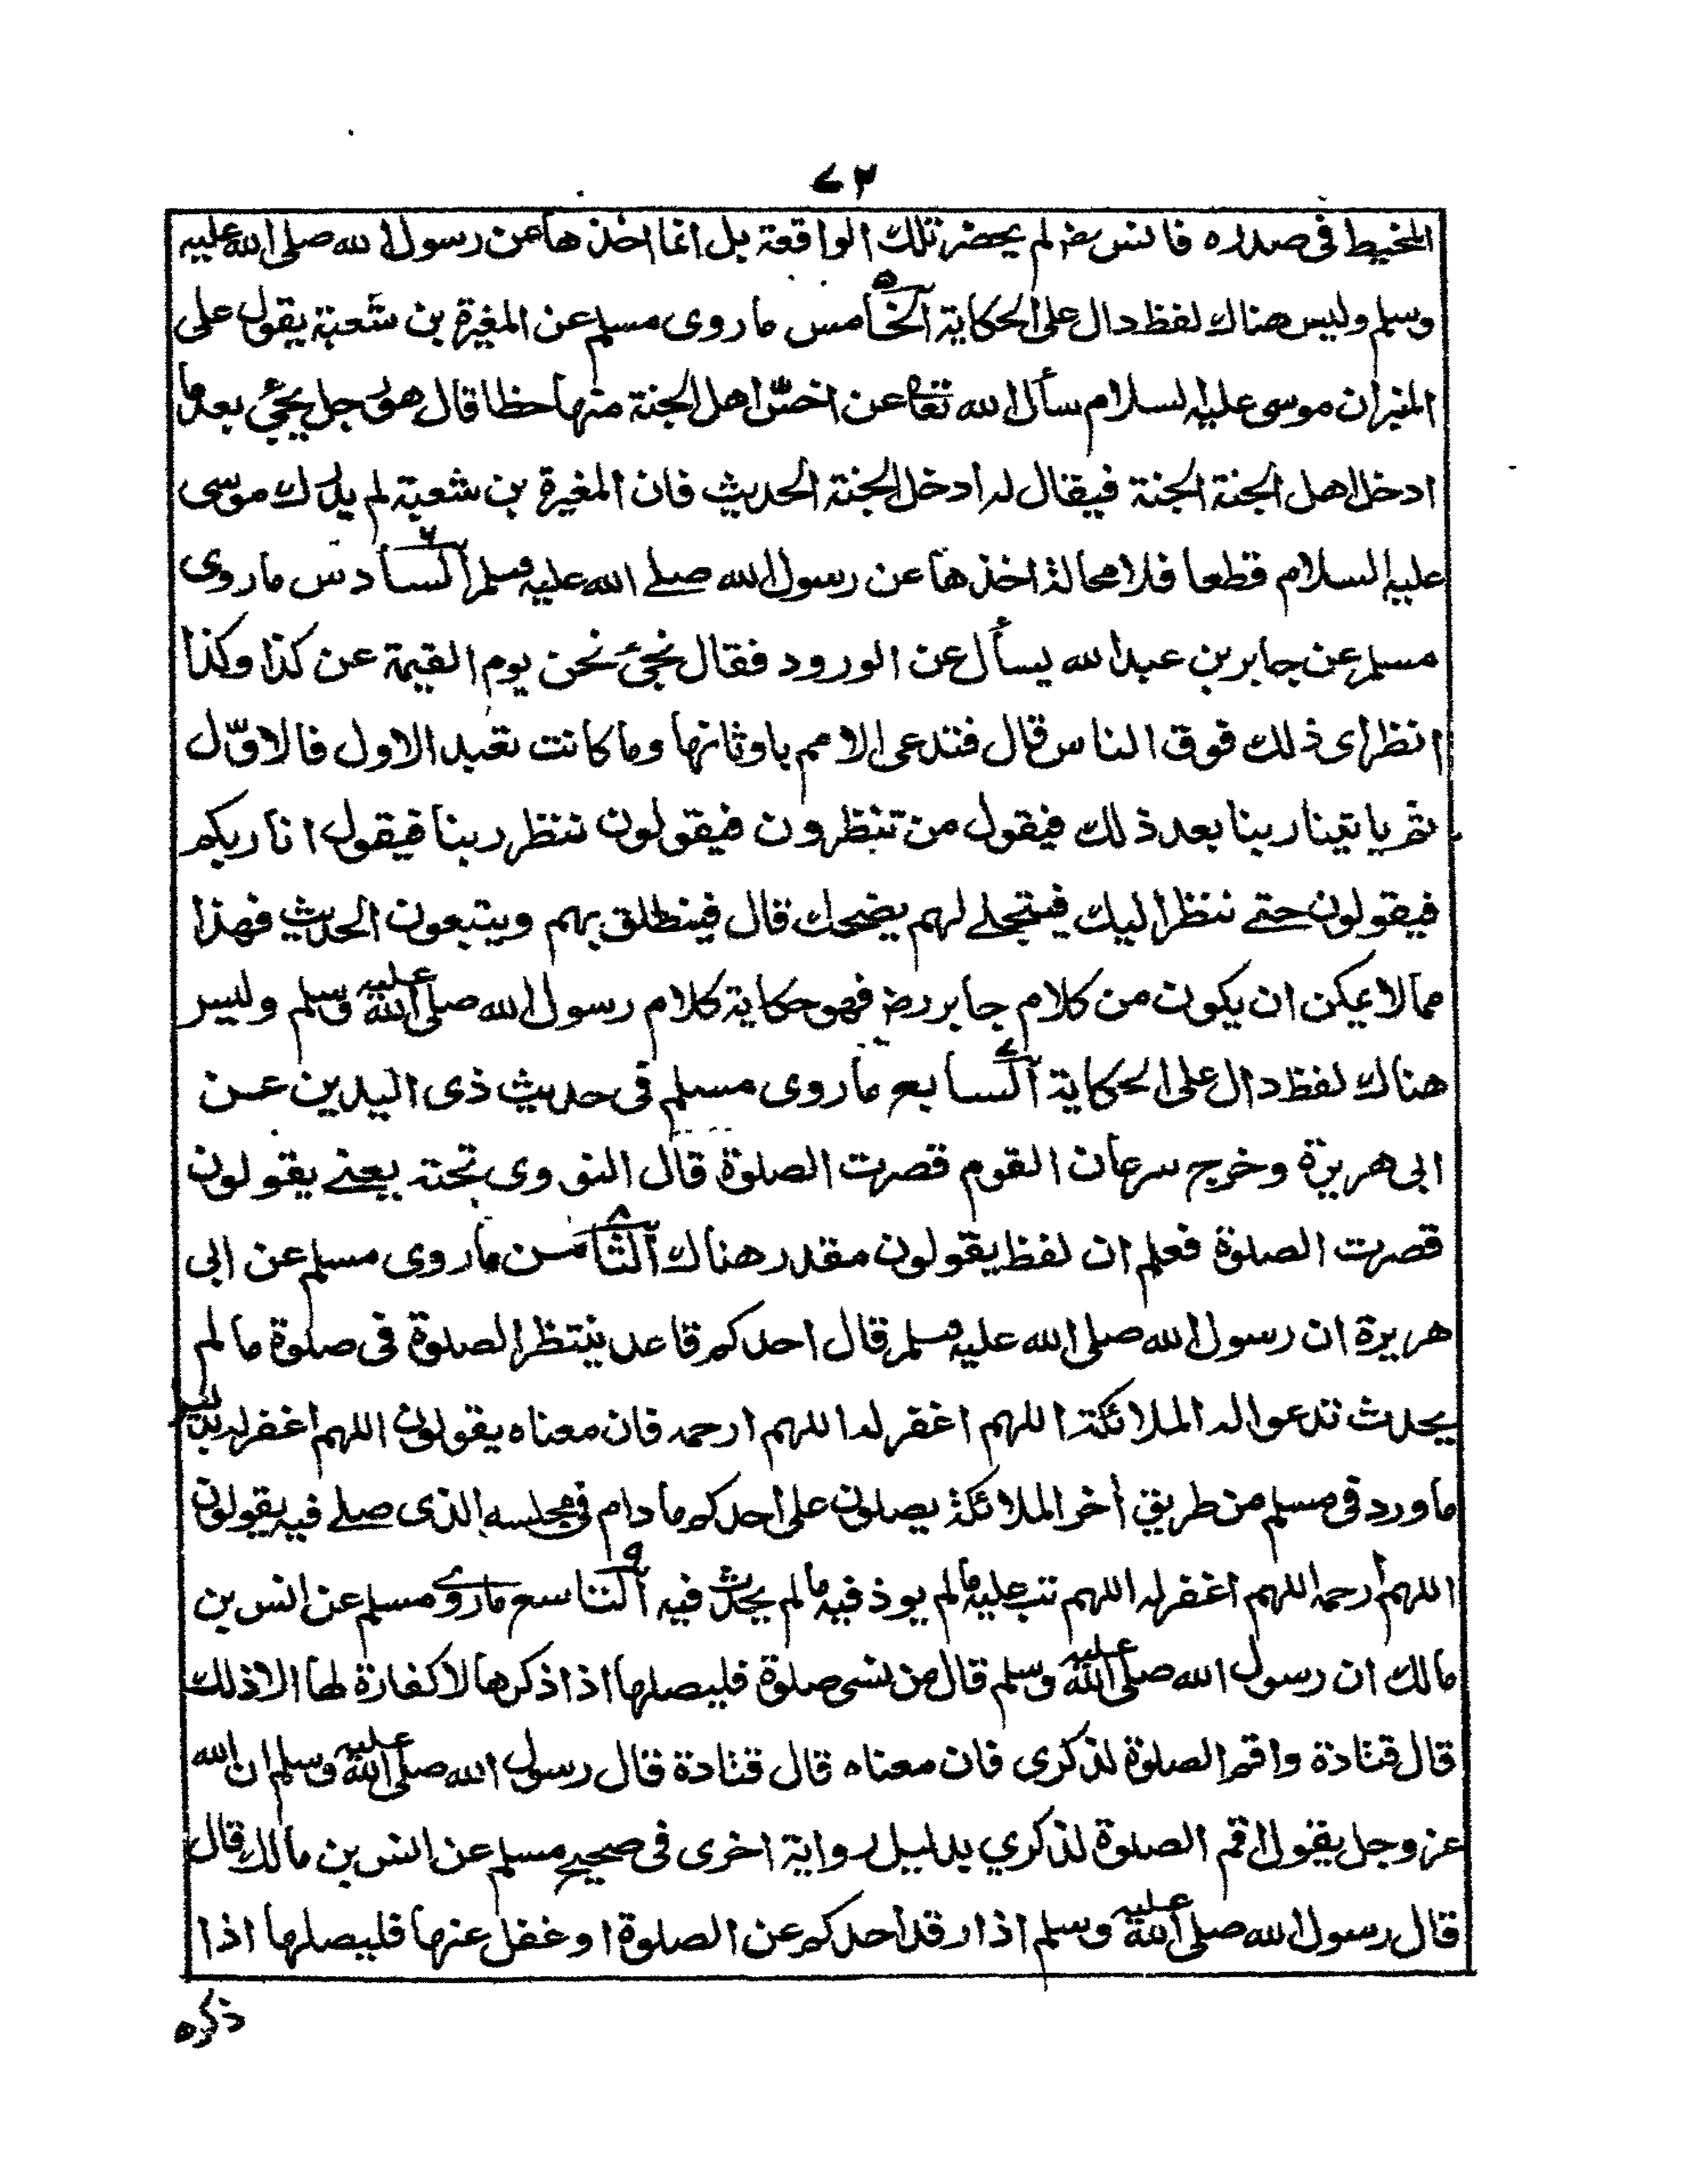 ٧٢
المخيط فى صدره فانس رضـ لم يحضر تلك الواقعة بل انما اخذها عن رسول الله صلى الله عليه
وسلم وليس هناك لفظ دال على الحكاية الخامس ٥ ما روى مسلم عن المغيرة بن شعبة يقول على
المنبر ان موسى عليه السلام سأل الله تعا عن اخسّ اهل الجنة منها حظا قال هو رجل يجئ بعد ما
ادخل اهل الجنة الجنة فيقال له ادخل الجنة الحديث فان المغيرة بن شعبة لم يدرك موسى
عليه السلام قطعا فلا محالة اخذها عن رسول الله صلے الله عليه وسلم السادس ٦ ما روى
مسلم عن جابر بن عبد الله يسأل عن الورود فقال نجئ نحن يوم القيمة عن كذا وكذا
انظر اى ذلك فوق الناس قال فتدعى الامم باوثانها وما كانت تعبد الاول فالاوّل
ثم ياتينا ربنا بعد ذلك فيقول من تنظرون فيقولون ننظر ربنا فيقول انا ربكم
فيقولون حتے ننظر اليك فيتجلے لهم يضحك قال فينطلق بهم ويتبعون الحديث فهذا
مما لا يمكن ان يكون من كلام جابر رضـ فهو حكاية كلام رسول الله صلى الله عليه وسلم وليس
هناك لفظ دال على الحكاية السابع ٧ ما روى مسلم فى حديث ذى اليدين عن
ابى هريرة وخرج سرعان القوم قصرت الصلوة قال النووى تحته يعنے يقولون
قصرت الصلوة فعلم ان لفظ يقولون مقدر هناك الثامن ٨ ما روى مسلم عن ابى
هريرة ان رسول الله صلى الله عليه وسلم قال احدكم قاعد ينتظر الصلوة فى صلوة ما لم
يحدث تدعوا له الملائكة اللهم اغفر له اللهم ارحمه فان معناه يقولون اللهم اغفر له بدليل
ما ورد فى مسلم من طريق أخر الملائكة يصلون على احدكم ما دام فى مجلسه الذى صلے فيه يقولون
اللهم ارحمه اللهم اغفر له اللهم تب عليه ما لم يوذ فيه ما لم يحدث فيه التاسع ٩ ما روے مسلم عن انس بن
مالك ان رسول الله صلى الله عليه وسلم قال من نسى صلوة فليصلها اذا ذكرها لا كفارة لها الا ذلك
قال قتادة واقم الصلوة لذكرى فان معناه قال قتادة قال رسول الله صلى الله عليه وسلم ان الله
عز وجل يقول اقم الصلوة لذكري بدليل رواية اخرى فى صحيح مسلم عن انس بن مالك قال
قال رسول الله صلى الله عليه وسلم اذا رقد احدكم عن الصلوة او غفل عنها فليصلها اذا
ذكره